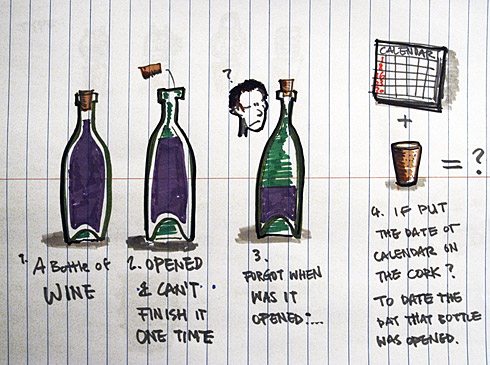 ?
CALENDAR
+
= ?
1. A Bottle of
WINE
2. OPENED
& CAN'T
FINISH IT
ONE TIME
3.
FORGOT WHEN
WAS IT
OPENED?...
4. IF PUT
THE DATE OF
CALENDAR ON
THE CORK?
TO DATE THE
DAT THAT BOTTLE
WAS OPENED.